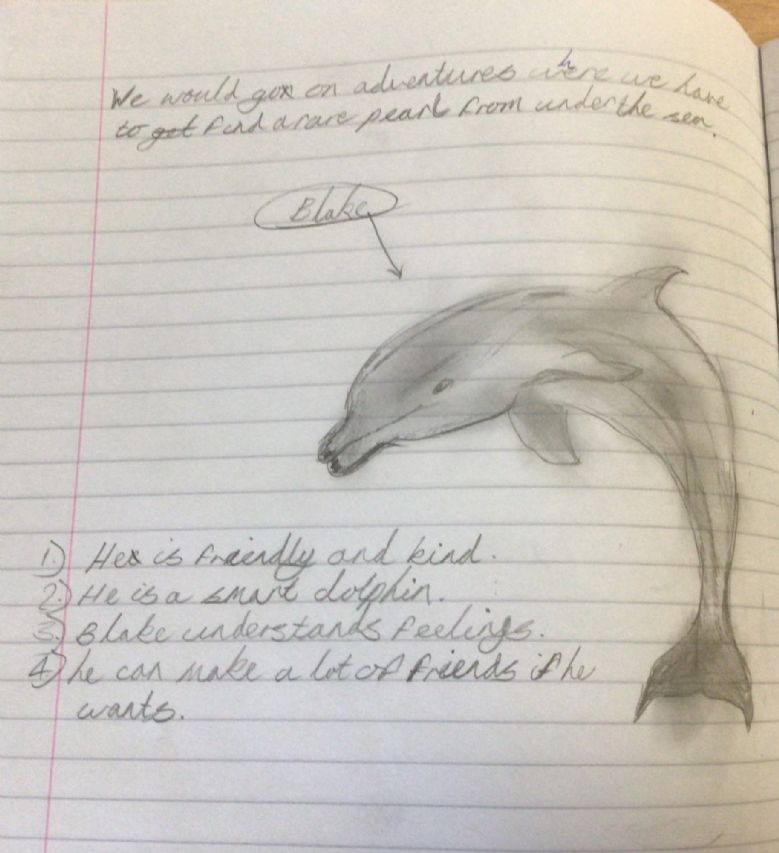 We would go on adventures where we have
to get find a rare pearl from under the sea.
Blake
1) He is friendly and kind.
2) He is a smart dolphin.
3) Blake understands feelings.
4) he can make a lot of friends if he
wants.